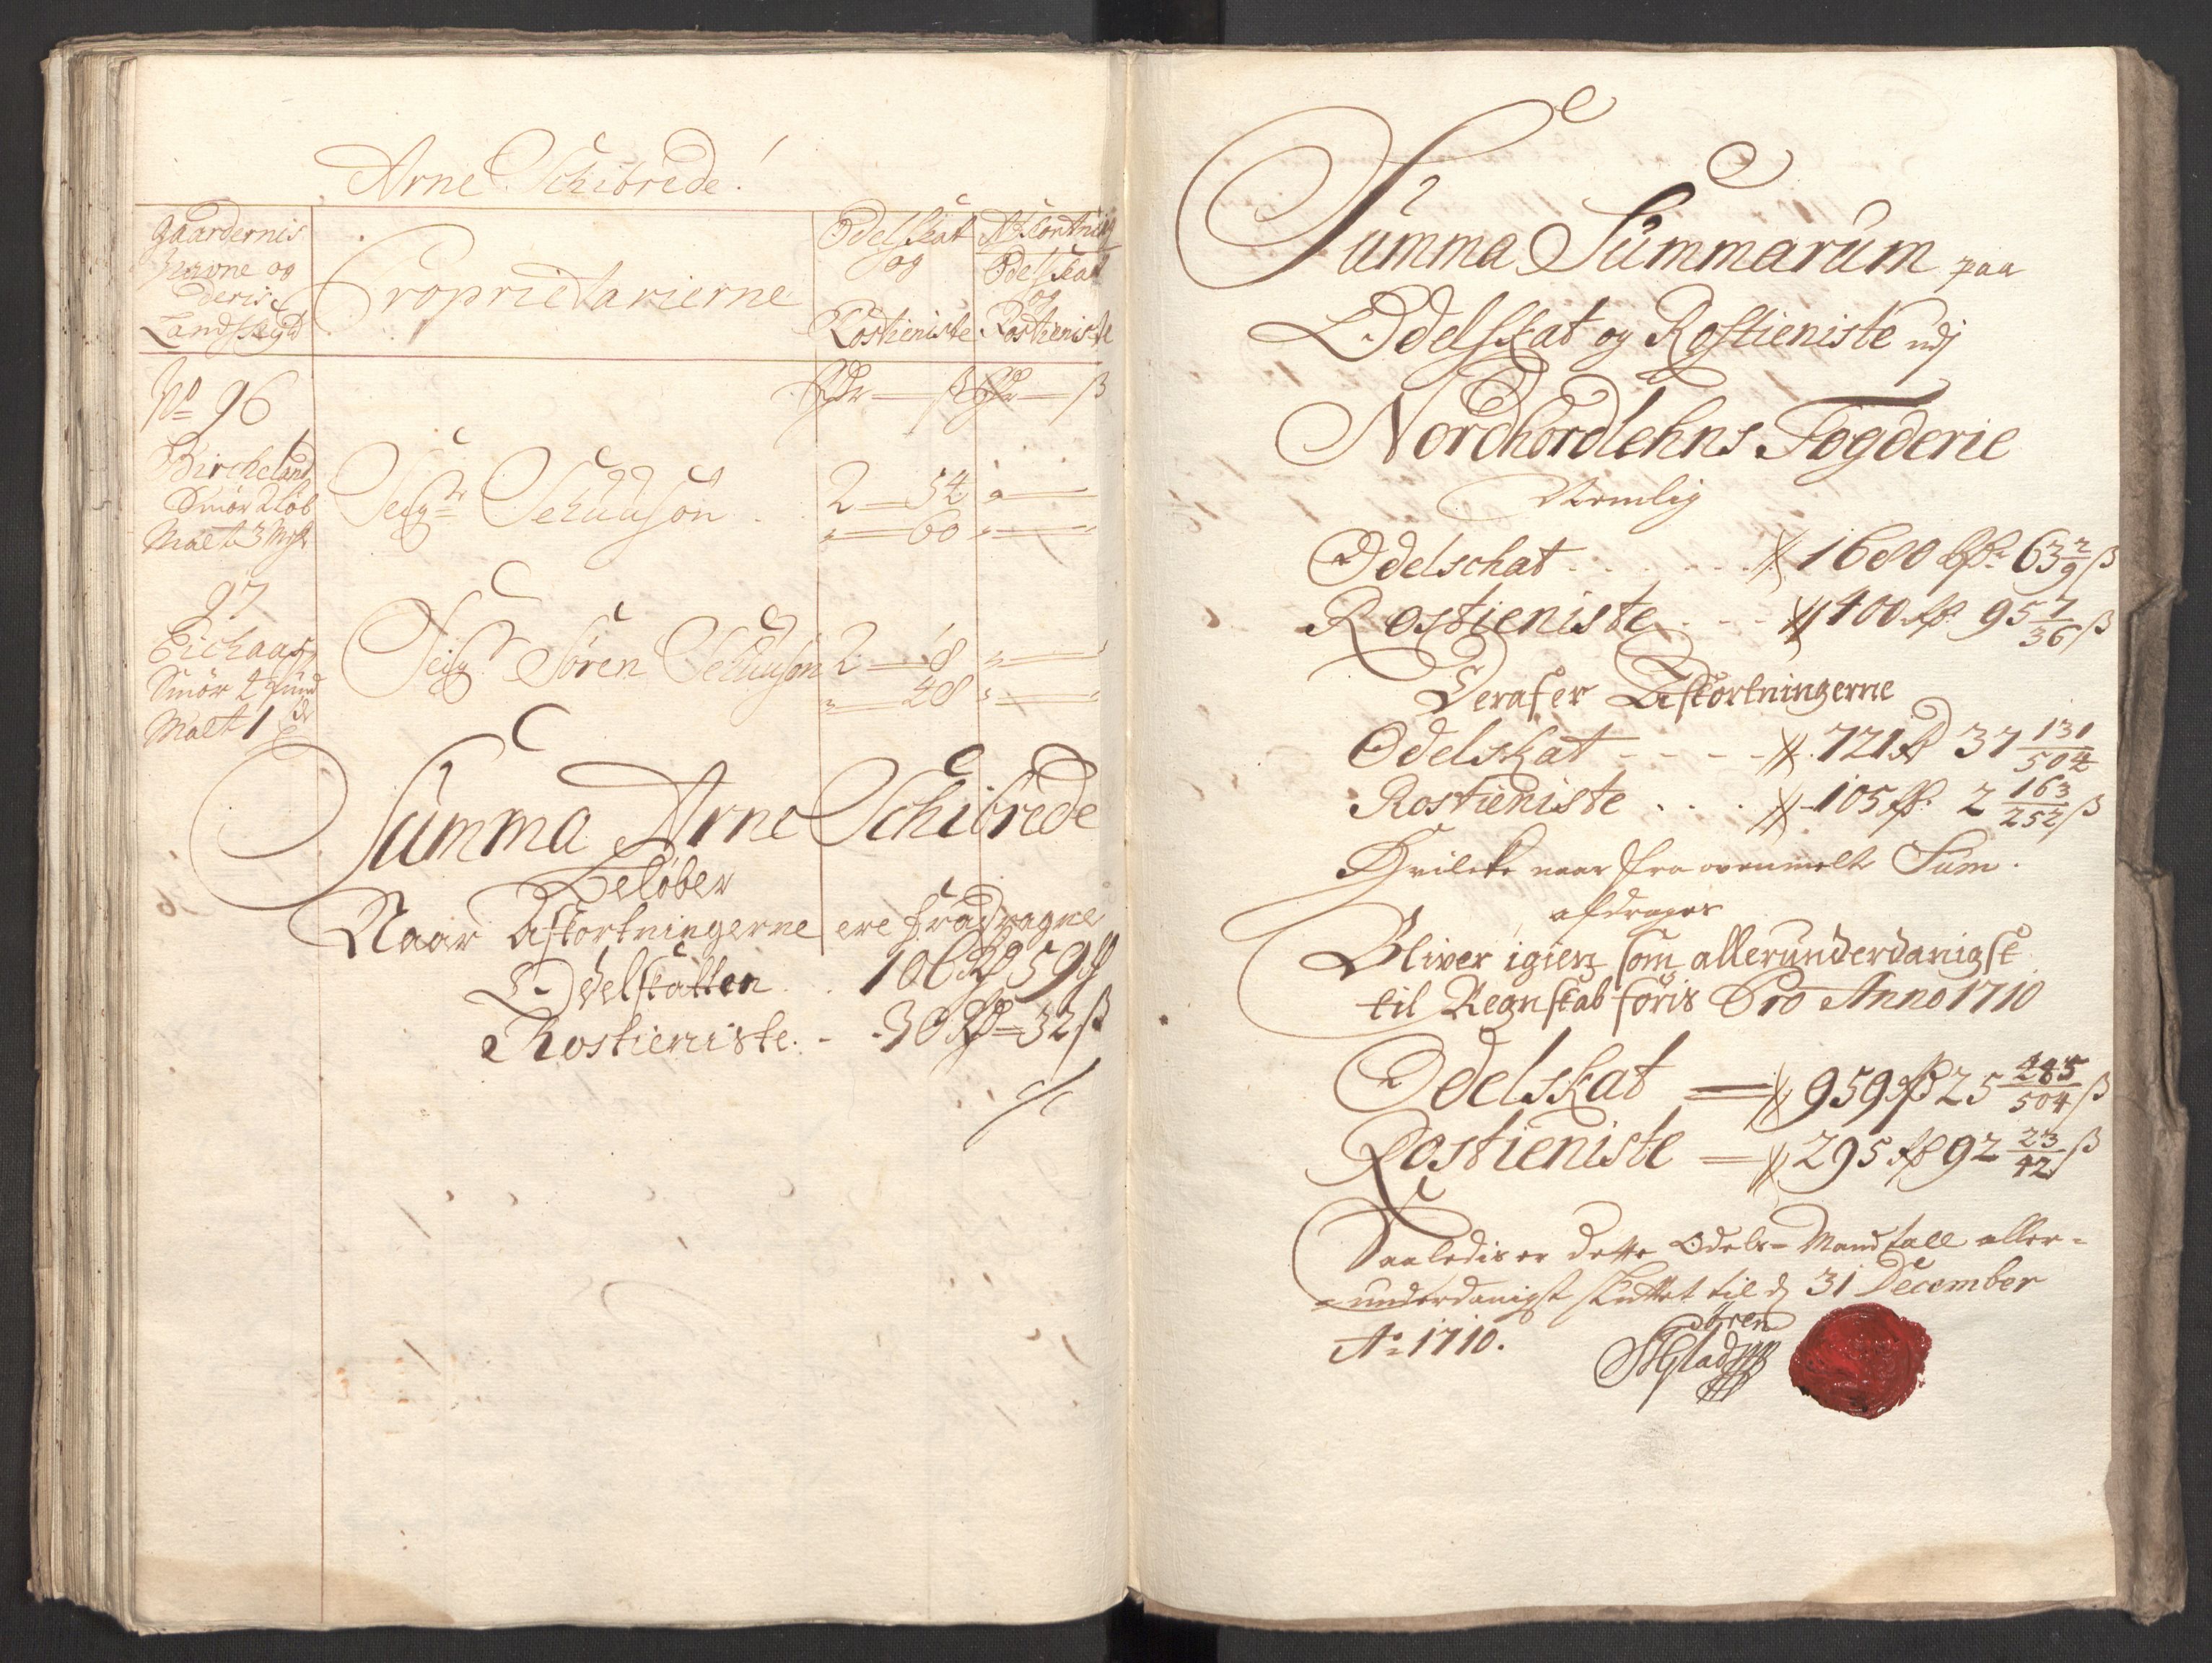 Arne Schibrede!
Gaardernis
Navne og
deris
Landskyld
Proprietarierne
Odelskat
og
Rostieniste
Afkortning
Odelskat
og
Rostieniste
No 96
Rdr — ß Rdr — ß
Bircheland
Smör 2 löb
Malt 3 Mæl
Seigr Schuuson
2 — 54
" — 60
97
Eichaas
Smör 2 Pund
Malt 1
Seigr Sören Schuuson
2 — 18
" — 48
Summa Arne Schibrede
Beløber
Naar Afkortningerne ere fradragne
Odelskatten . . 106 Rd 59 ß
Rostieniste . - . 30 Rd = 32 ß
Summa Summarum paa
Odelskat og Rostieniste udj
Nordhordlehns Fogderie
Nemlig
Odelschat . . . . . . . 1680 Rdr 63 2/9 ß
Rostieniste . - - - 400 Rd 95 7/36 ß
Deraf er Afkortningerne
Odelskat - - - - 721 Rd 37 131/504
Rostieniste . . . . 105 Rd 2 163/252 ß
Hvilcke naar fra ovenmelte Sum.
afdrages
Bliver igien som allerunderdanigst
til Regnskab föris Pro Anno 1710
Odelskat = 959 Rd 25 485/504 ß
Rostieniste = 295 Rd 92 23/42 ß
Saaledis er dette Odels-Mandtall aller=
=underdanigst sluttet til d 31 December
Ao 1710.
Sören